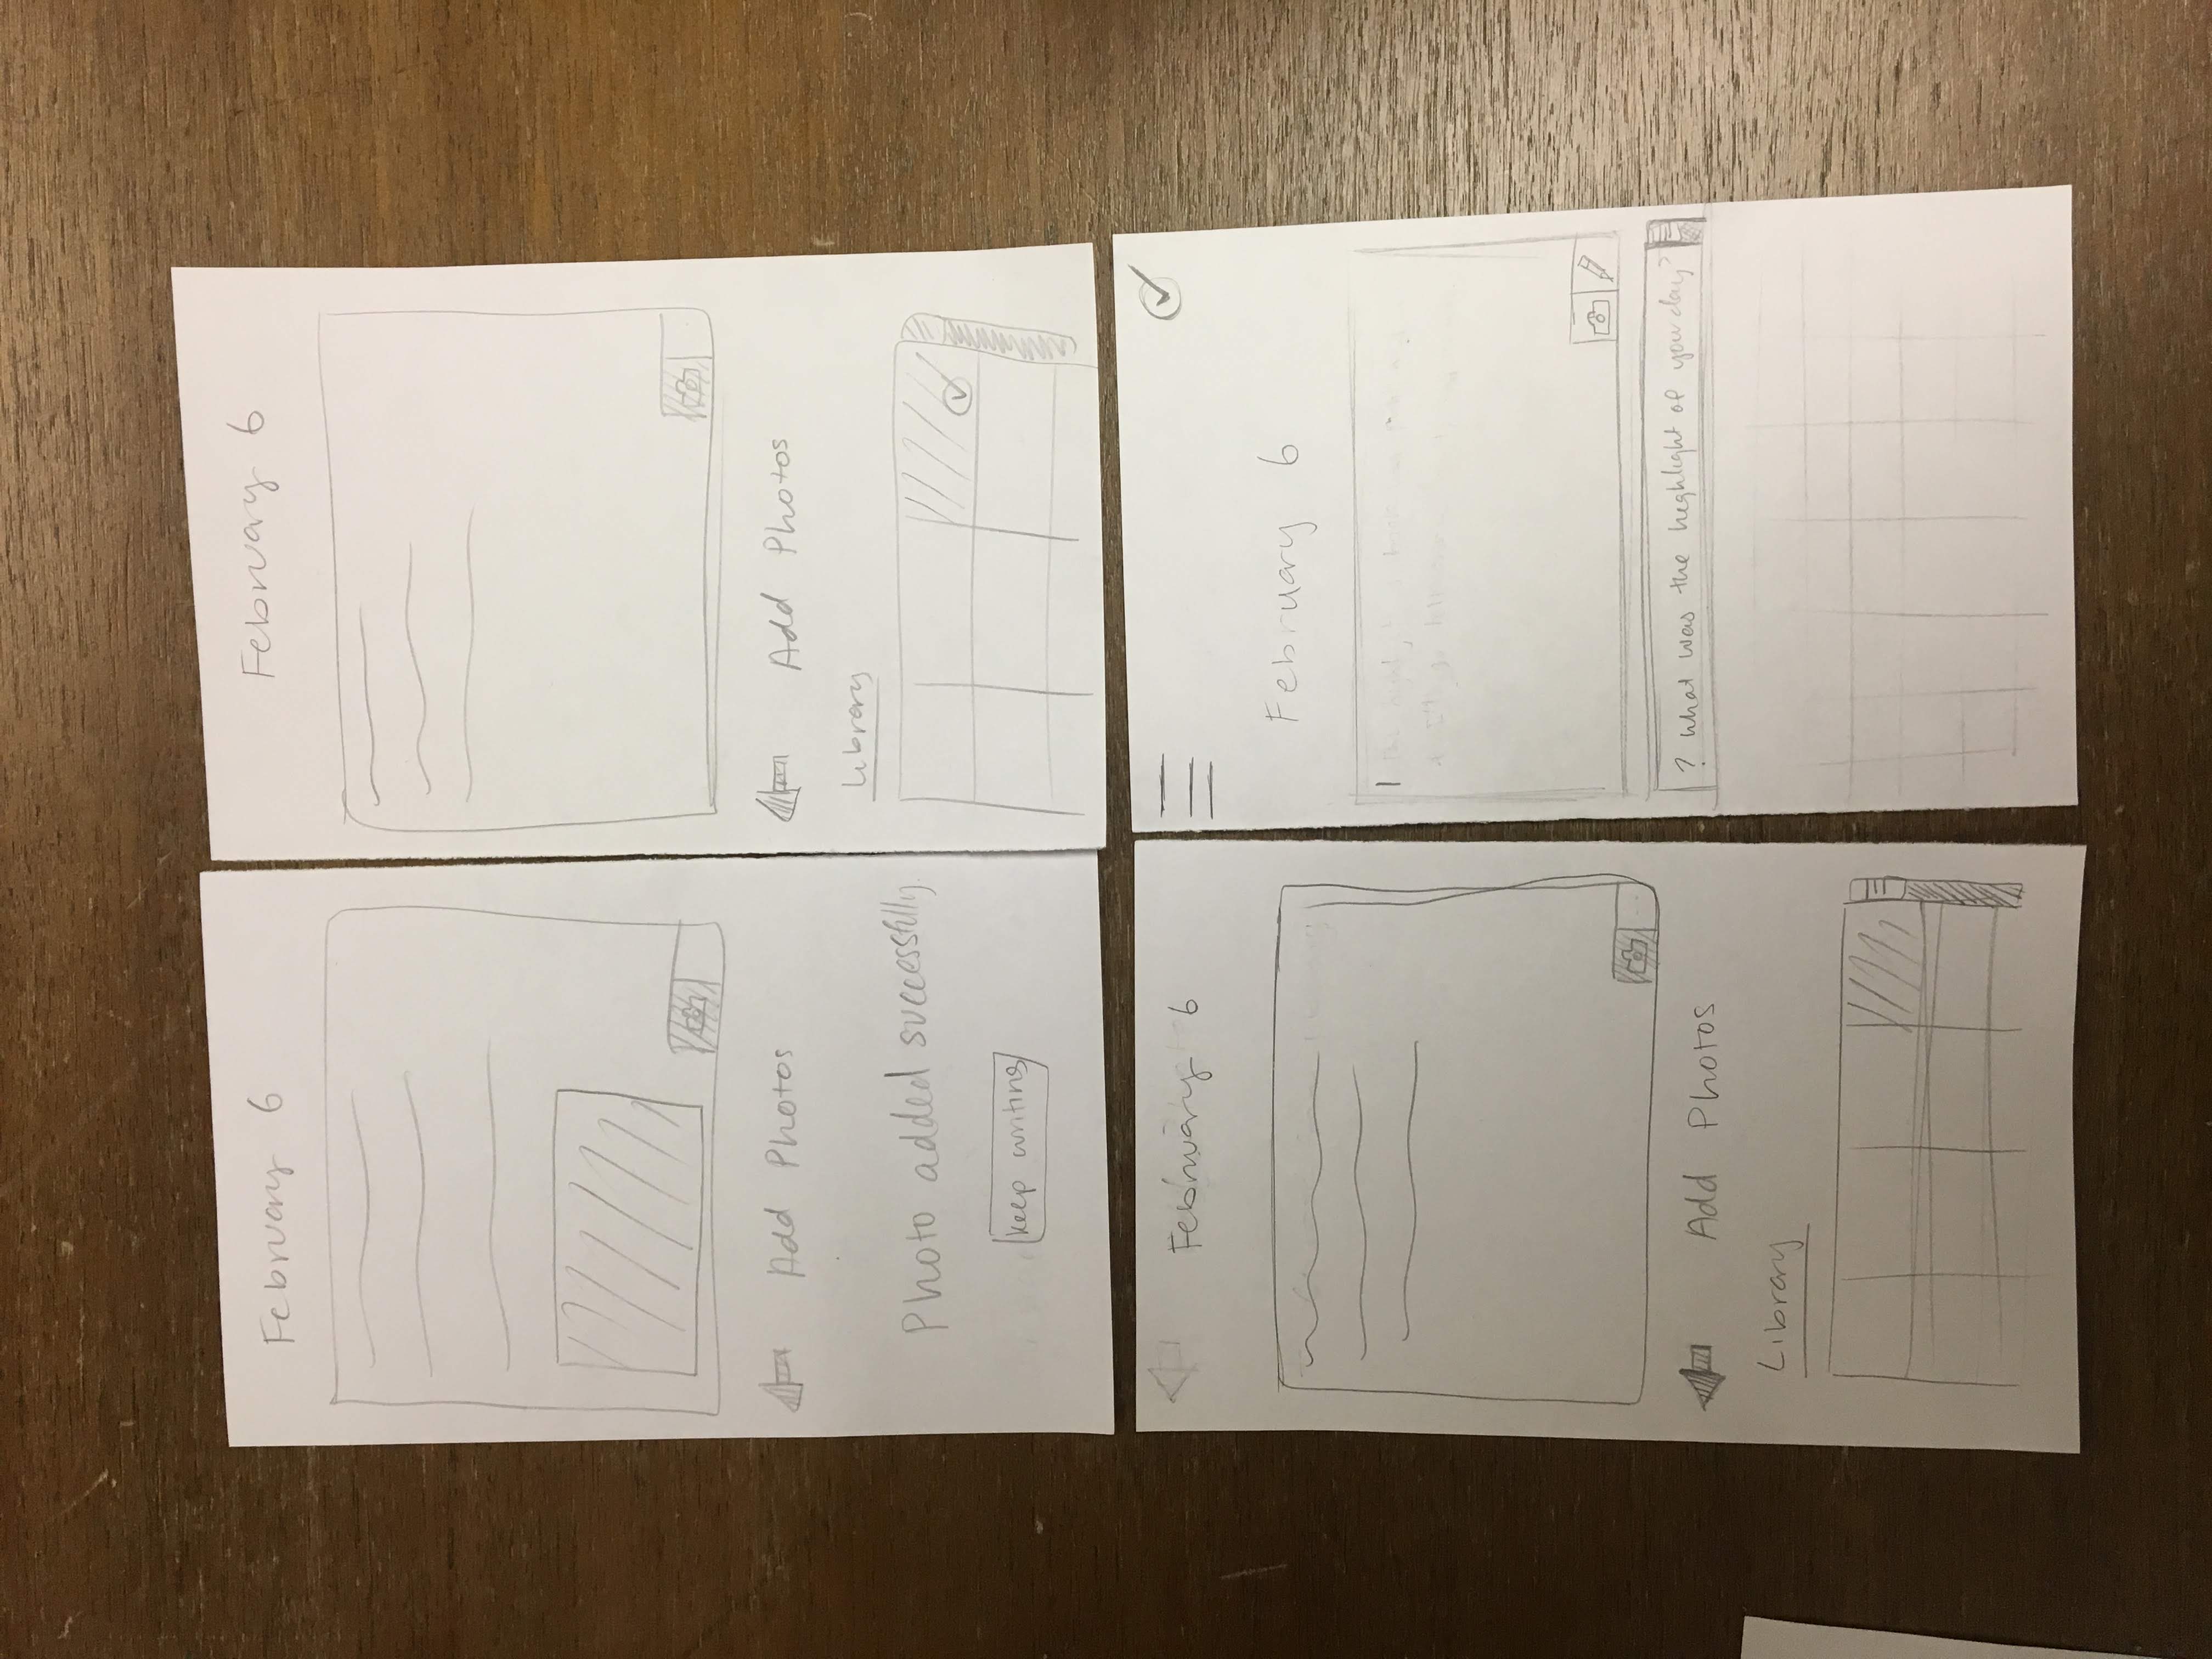 February 6
Add Photos
Photo added successfully.
keep writing
February 6
Add Photos
Library
February 6
Add Photos
Library
February 6
? What was the highlight of your day?